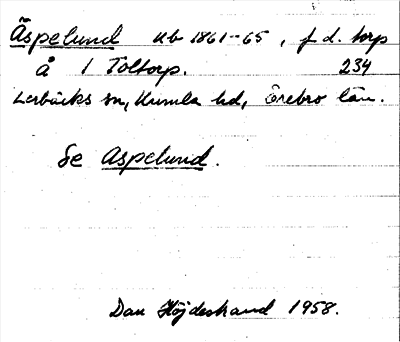 Äspelund ub 1861-65, f d. torp
å 1 Töltorp. 234
Lerbäcks sn, Kumla hd, Örebro län.
Se Aspelund.
Dan Höjdestrand 1958.